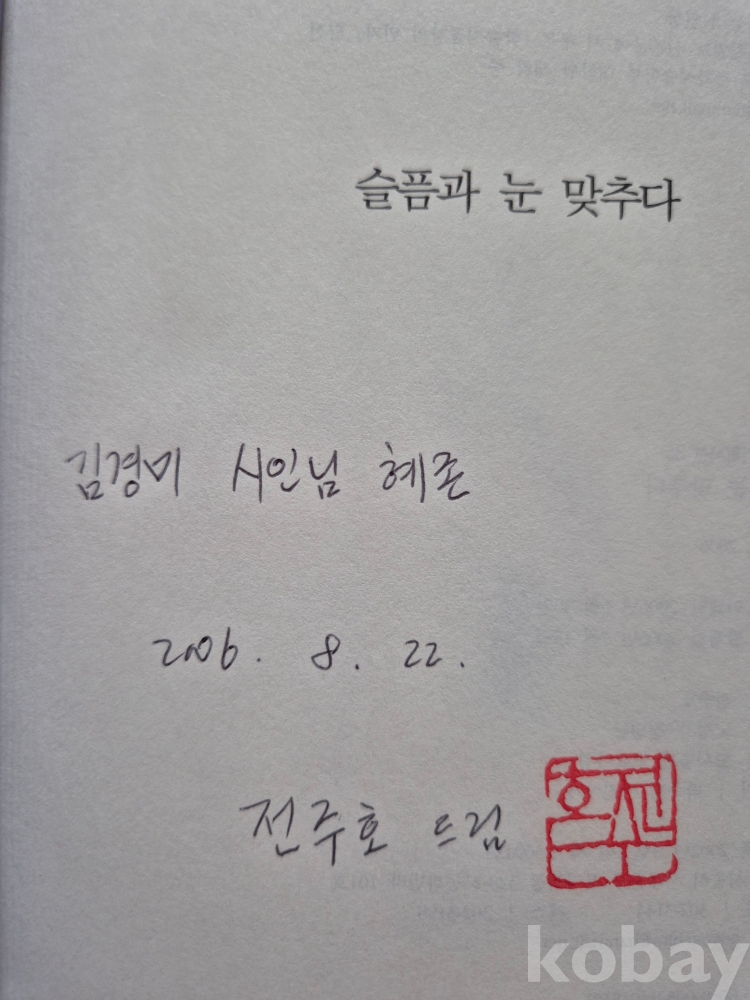 슬픔과 눈 맞추다
김경미 시인님 혜존
2006. 8. 22.
전주호 드림
kobay